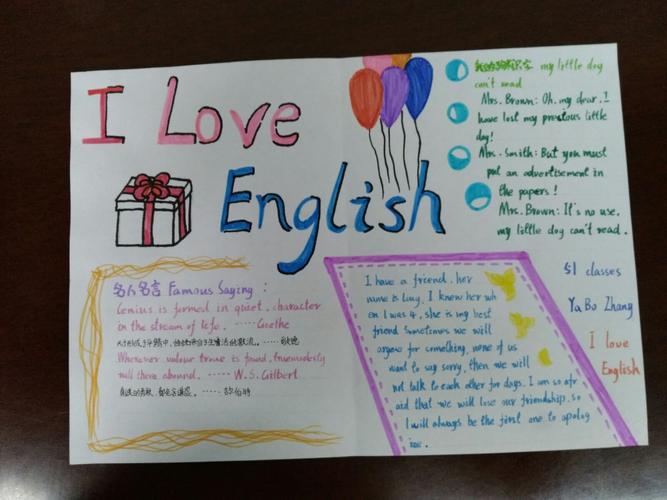 I Love
English
我的狗不识字 my little dog
can't read
Mrs. Brown: Oh, my dear, I
have lost my precious little
day!
Mrs. Smith: But you must
put an advertisement in
the papers!
Mrs. Brown: It's no use,
my little dog can't read.
名人名言 Famous Saying:
Genius is formed in quiet, character
in the stream of life. ...... Goethe
Wherever valour true is found, true modesty
will there abound. ...... W.S. Gilbert
I have a friend, her
name is Ling, I knew her wh
en I was 4, she is my best
friend sometimes we will
argow for something, none of us
want to say sorry, then we will
not talk to each other for days. I am so afr
aid that we will lose our friendship, so
I will always be the first one to apolog
ize.
51 classes
Ya Bo Zhang
I love
English